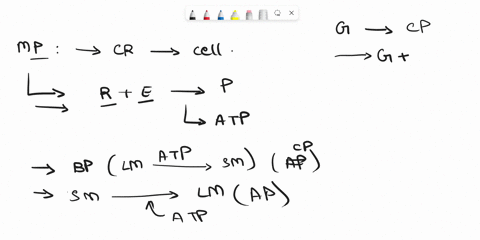 MP : → CR → cell .
R + E → P
ATP
→ BP ( LM ATP → SM ) ( AP CP )
→ SM → LM ( AP )
ATP
G → CP
→ G +